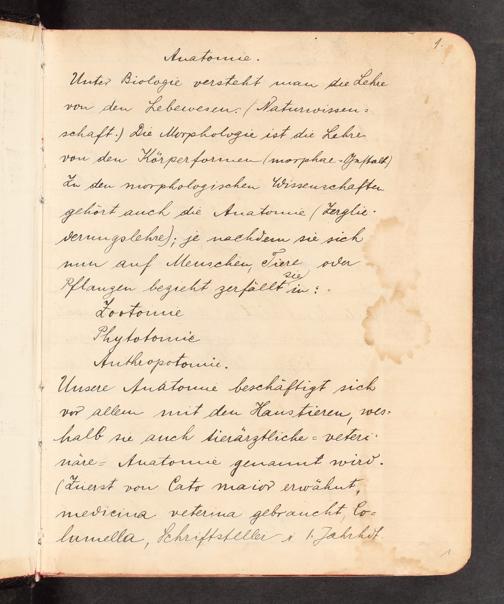 1.
Anatomie.
Unter Biologie versteht man die Lehre
von den Lebewesen. (Naturwissen=
schaft.) Die Morphologie ist die Lehre
von den Körperformen (morphae-Gestalt)
Zu den morphologischen Wissenschaften
gehört auch die Anatomie (Zerglie-
derungslehre); je nachdem sie sich
nun auf Menschen, Tiere oder
Pflanzen bezieht zerfällt sie in:
Zootomie
Phytotomie
Anthropotomie.
Unsere Anatomie beschäftigt sich
vor allem mit den Haustieren, wes-
halb sie auch tierärztliche = veteri-
näre = Anatomie genannt wird.
(Zuerst von Cato maior erwähnt,
medicina veterina gebraucht, Co=
lumella, Schriftsteller i 1. Jahrhdt.